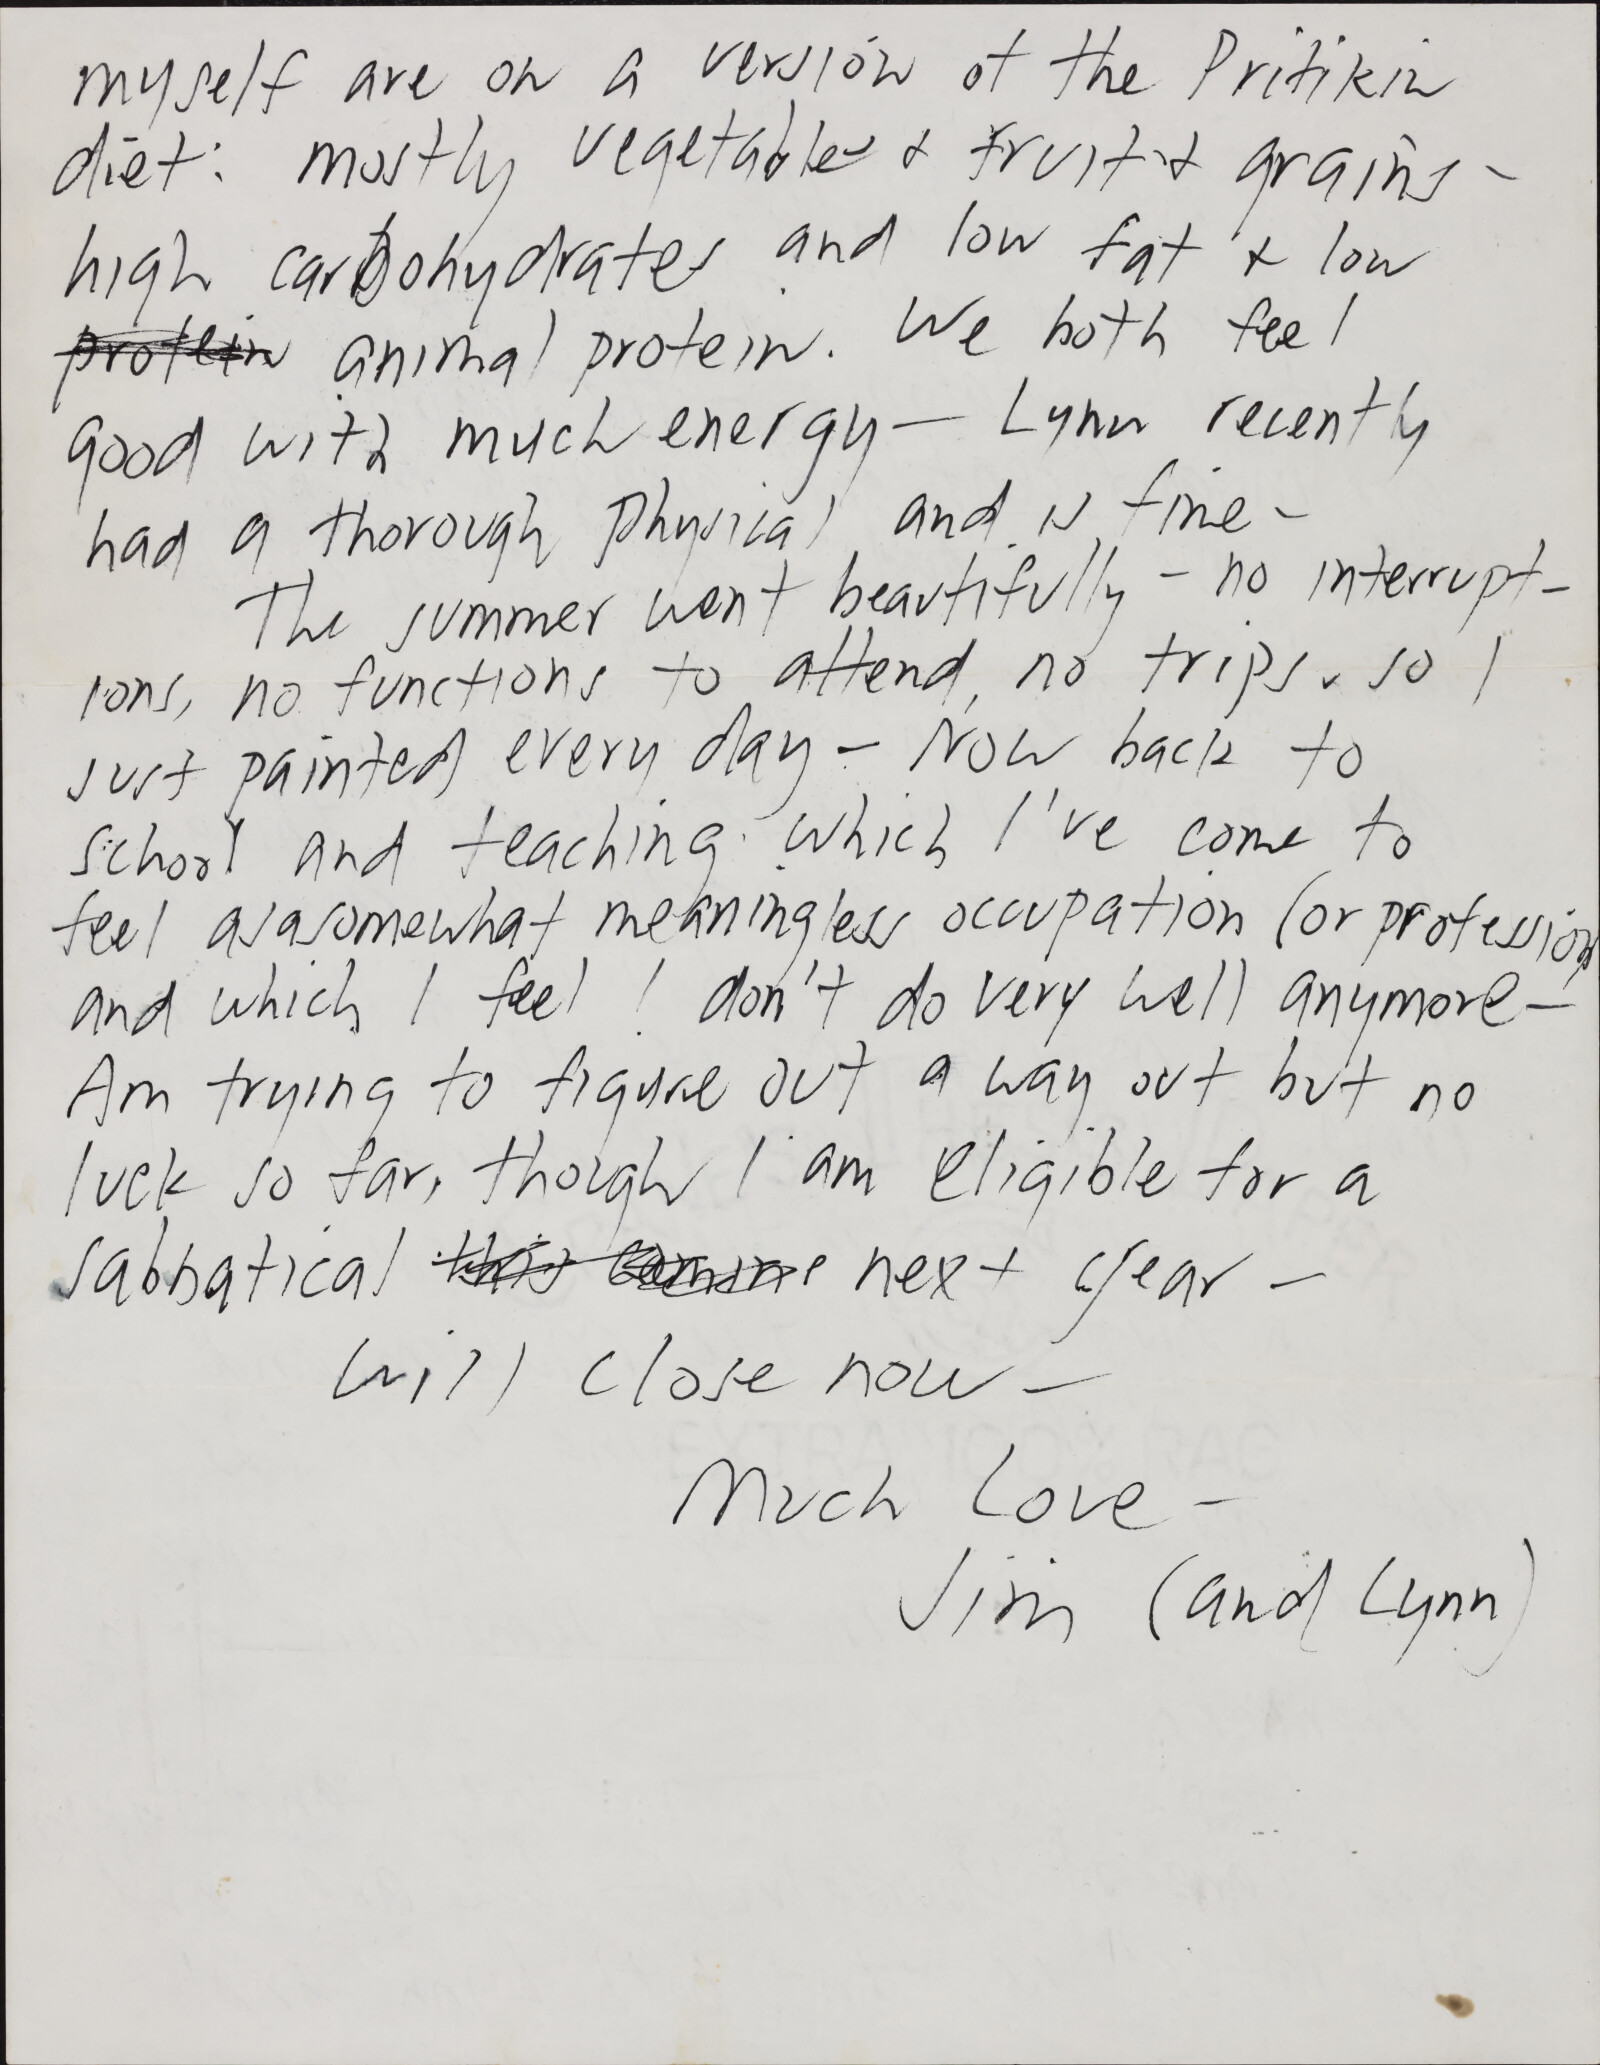 myself are on a version of the Pritikin
diet: mostly vegetables & fruit & grains -
high carbohydrates and low fat & low
protein animal protein. We both feel
good with much energy — Lynn recently
had a thorough physical and is fine -
The summer went beautifully - no interrupt-
ions, no functions to attend, no trips. so I
just painted every day - Now back to
school and teaching which I've come to
feel as a somewhat meaningless occupation (or profession)
and which I feel I don't do very well anymore -
Am trying to figure out a way out but no
luck so far, though I am eligible for a
sabbatical this coming next year -
Will close now -
Much Love -
Jim (and Lynn)